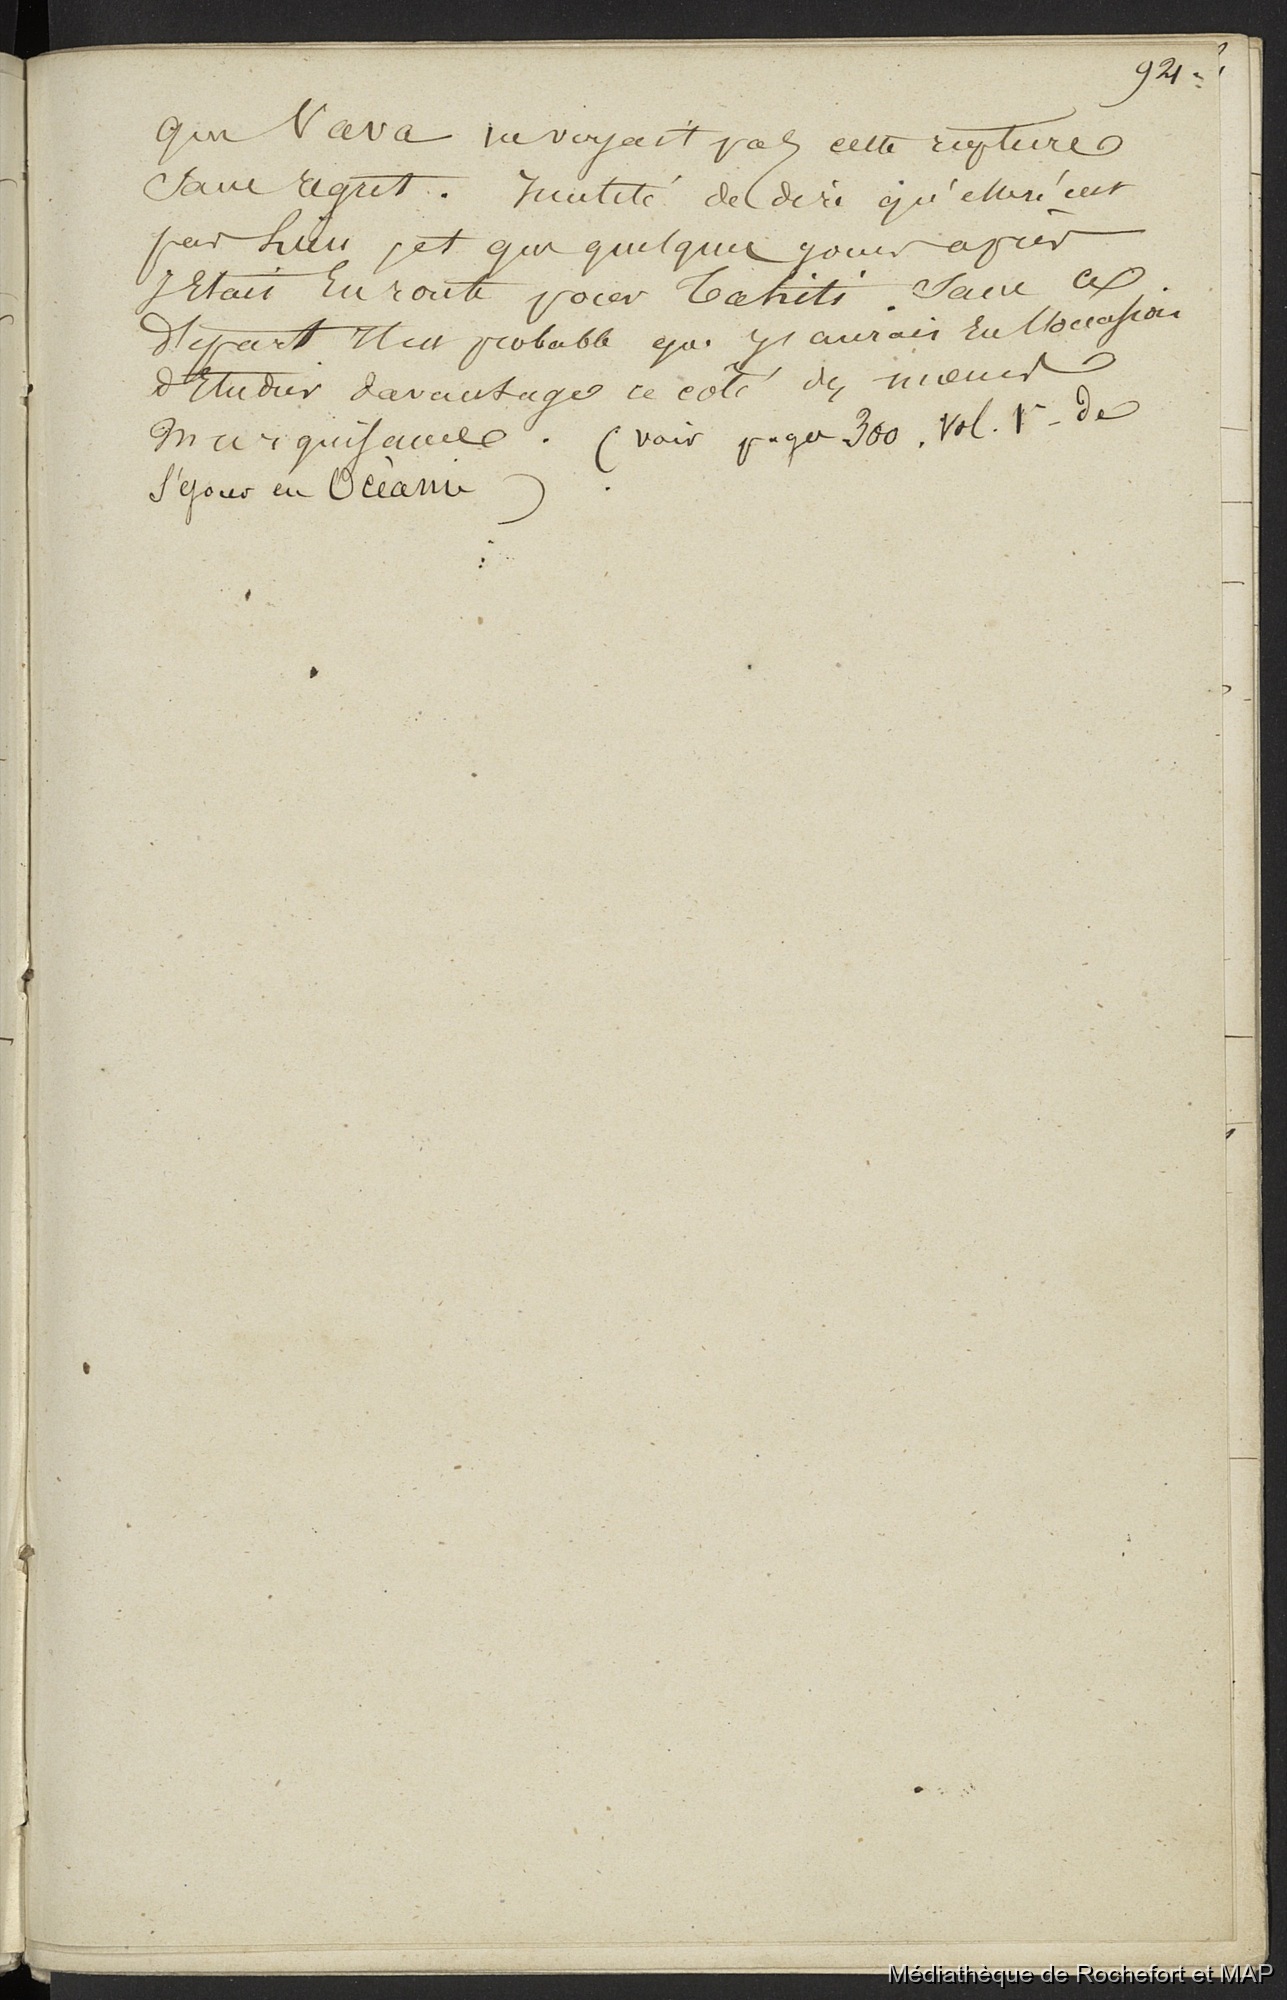 92
que Vava ne voyait pas cette rupture
sans regret. Inutile de dire qu'elle n'eut
pas lieu et que quelques jours après
j'Etais En route pour Tahiti. Sans ce
départ Il est probable que j'aurais Eu l'occasion
d'Etudier davantage ce coté des moeurs
Marquisanes. (voir page 300, vol. 1r de
Séjour en Océanie)
Médiathèque de Rochefort et MAP